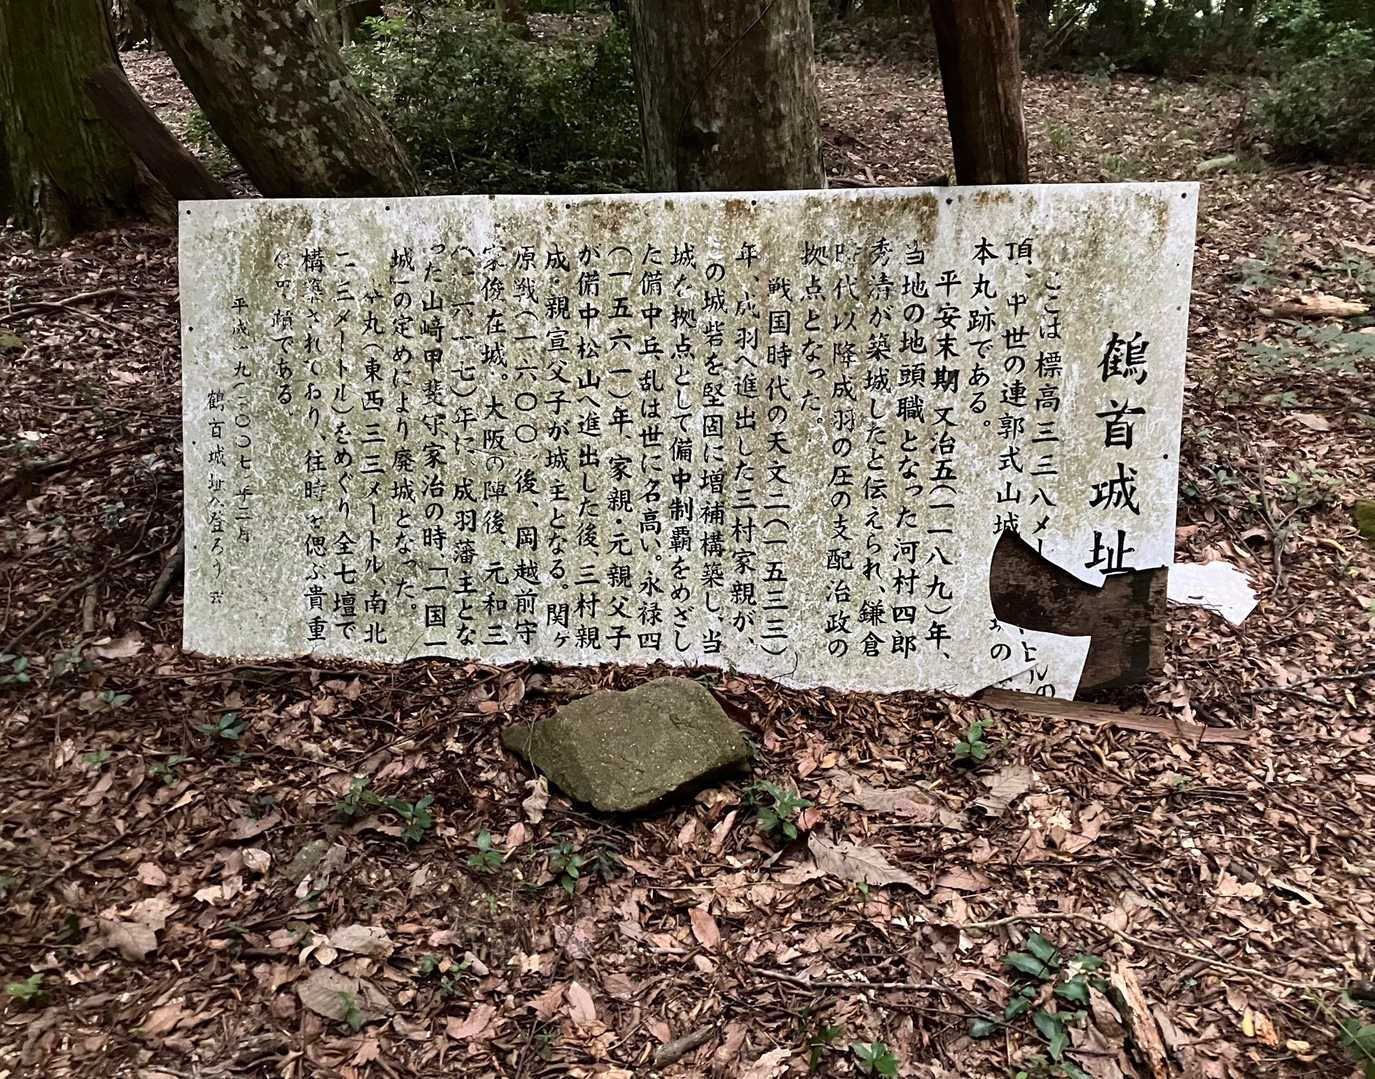 鶴首城址
ここは標高三三八メートルの
頂、中世の連郭式山城 の
本丸跡である。
平安末期 文治五(一一八九)年、
当地の地頭職となった河村四郎
秀清が築城したと伝えられ、鎌倉
時代以降成羽の庄の支配治政の
拠点となった。
戦国時代の天文二(一五三三)
年、成羽へ進出した三村家親が、
この城砦を堅固に増補構築し、当
城を拠点として備中制覇をめざし
た備中兵乱は世に名高い。永禄四
(一五六一)年、家親・元親父子
が備中松山へ進出した後、三村親
成・親宣父子が城主となる。関ヶ
原戦(一六〇〇)後、岡越前守
家俊在城。大阪の陣後、元和三
(一六一七)年に、成羽藩主とな
った山﨑甲斐守家治の時、「一国一
城」の定めにより廃城となった。
丸(東西三三メートル、南北
二三メートル)をめぐり全七壇で
構築されており、往時を偲ぶ貴重
である
平成一九(二〇〇七)年三月
鶴首城址へ登ろう会